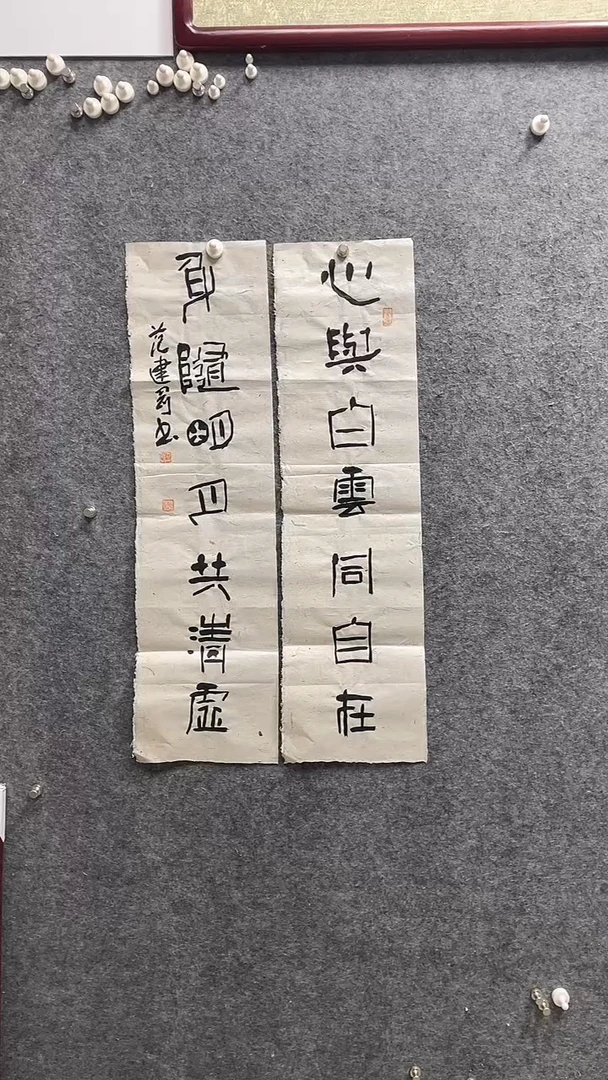 心與白雲同自在
身隨明月共清虛
范建司书